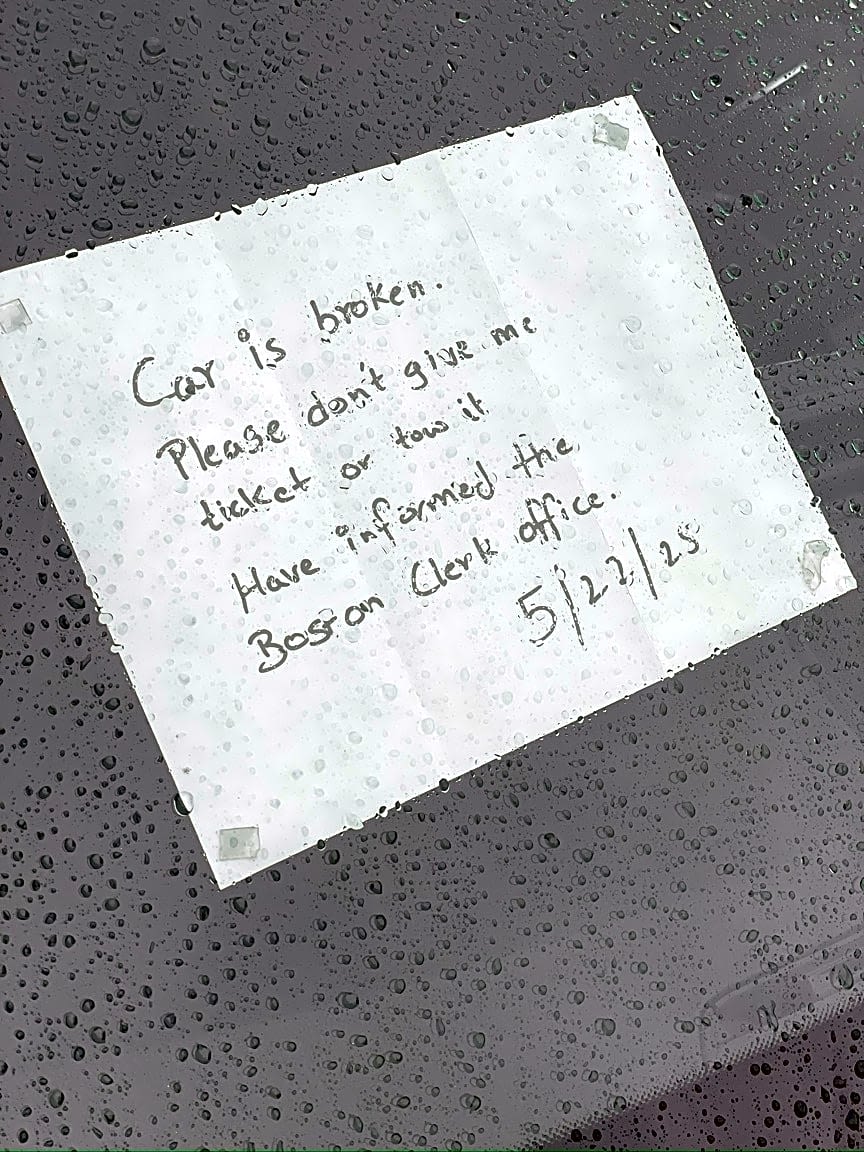 Car is broken.
Please don't give me
ticket or tow it
Have informed the
Boston Clerk office.
5/22/25